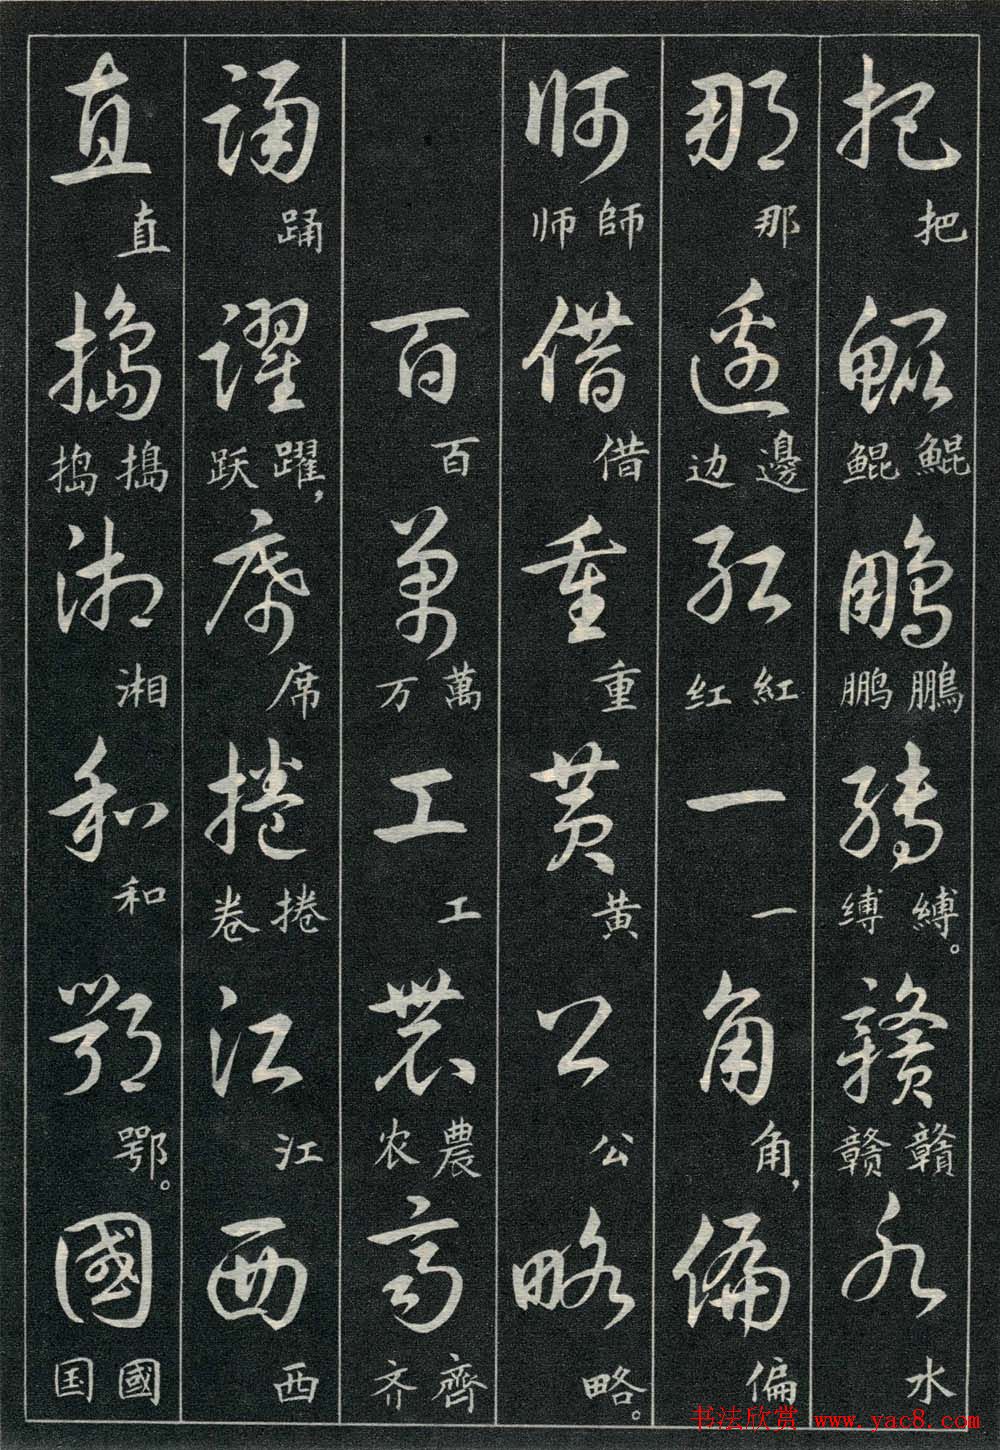 把 把 鯤 鯤 鲲 鵬 鵬 鹏 縛 縛。 缚 贛 贛 赣 水 水
那 那 邊 邊 边 紅 紅 红 一 一 角 角， 偏 偏
師 師 师 借 借 重 重 黄 黄 公 公 略 略。
百 百 萬 萬 万 工 工 農 農 农 齊 齊 齐
踊 踊 躍 躍， 跃 席 席 捲 捲 卷 江 江 西 西
直 直 搗 搗 捣 湘 湘 和 和 鄂 鄂。 國 國 国
书法欣赏 www.yac8.com